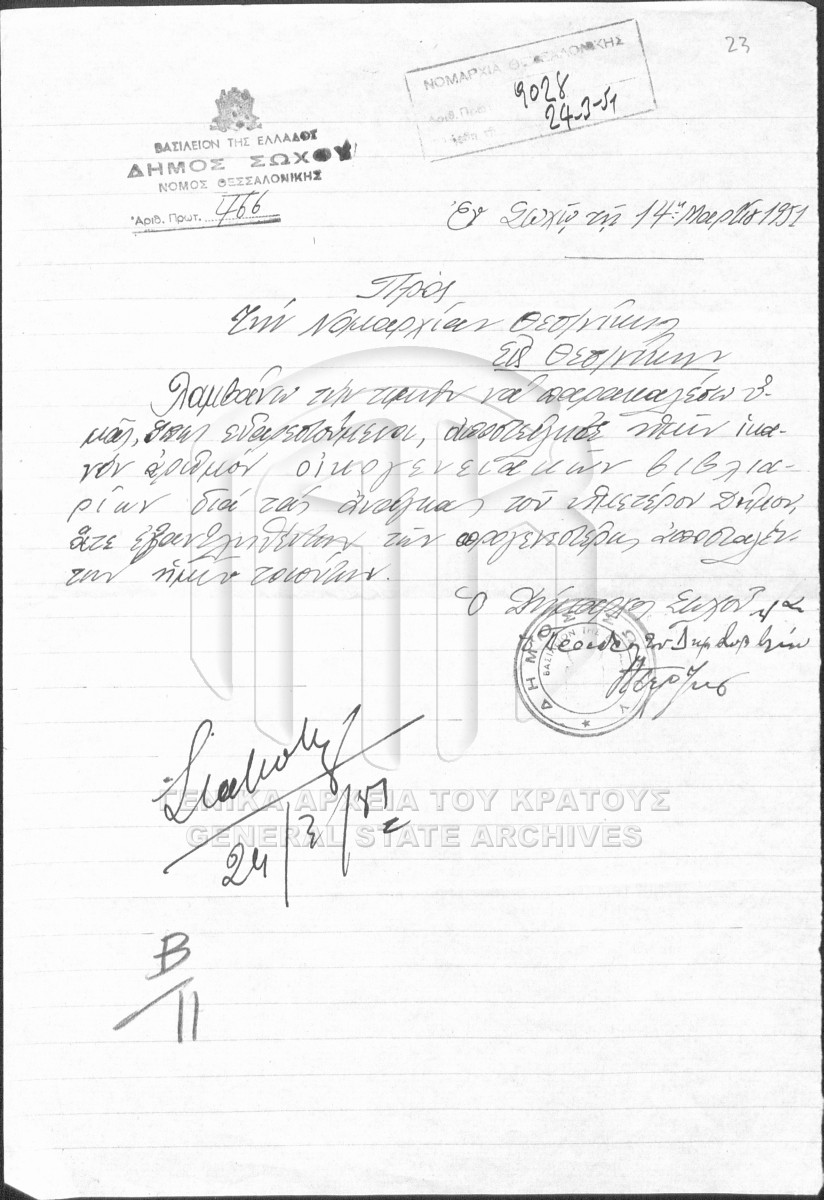 23
ΝΟΜΑΡΧΙΑ ΘΕΣΣΑΛΟΝΙΚΗΣ
Αριθ. Πρωτ. 9028
24-3-51
ΒΑΣΙΛΕΙΟΝ ΤΗΣ ΕΛΛΑΔΟΣ
ΔΗΜΟΣ ΣΩΧΟΥ
ΝΟΜΟΣ ΘΕΣΣΑΛΟΝΙΚΗΣ
Ἀριθ. Πρωτ. 466
Ἐν Σωχῷ τῇ 14ῃ Μαρτίου 1951
Πρὸς
Τὴν Νομαρχίαν Θεσ/νίκης
Εἰς Θεσ/νίκην
Λαμβάνω τὴν τιμὴν νὰ παρακαλέσω ὑ-
μᾶς, ὅπως εὐαρεστούμενοι, ἀποστείλητε ἡμῖν ἱκα-
νὸν ἀριθμὸν οἰκογενειακῶν βιβλια-
ρίων διὰ τὰς ἀνάγκας τοῦ ἡμετέρου Δήμου,
ἅτε ἐξαντληθέντων τῶν προγενεστέρως ἀποσταλέν-
των ἡμῖν τοιούτων.
Ὁ Δήμαρχος Σωχοῦ
ΔΗΜΟΣ ΣΩΧΟΥ
ΒΑΣΙΛΕΙΟΝ ΤΗΣ
24/3/51
ΓΕΝΙΚΑ ΑΡΧΕΙΑ ΤΟΥ ΚΡΑΤΟΥΣ
GENERAL STATE ARCHIVES
Β/11